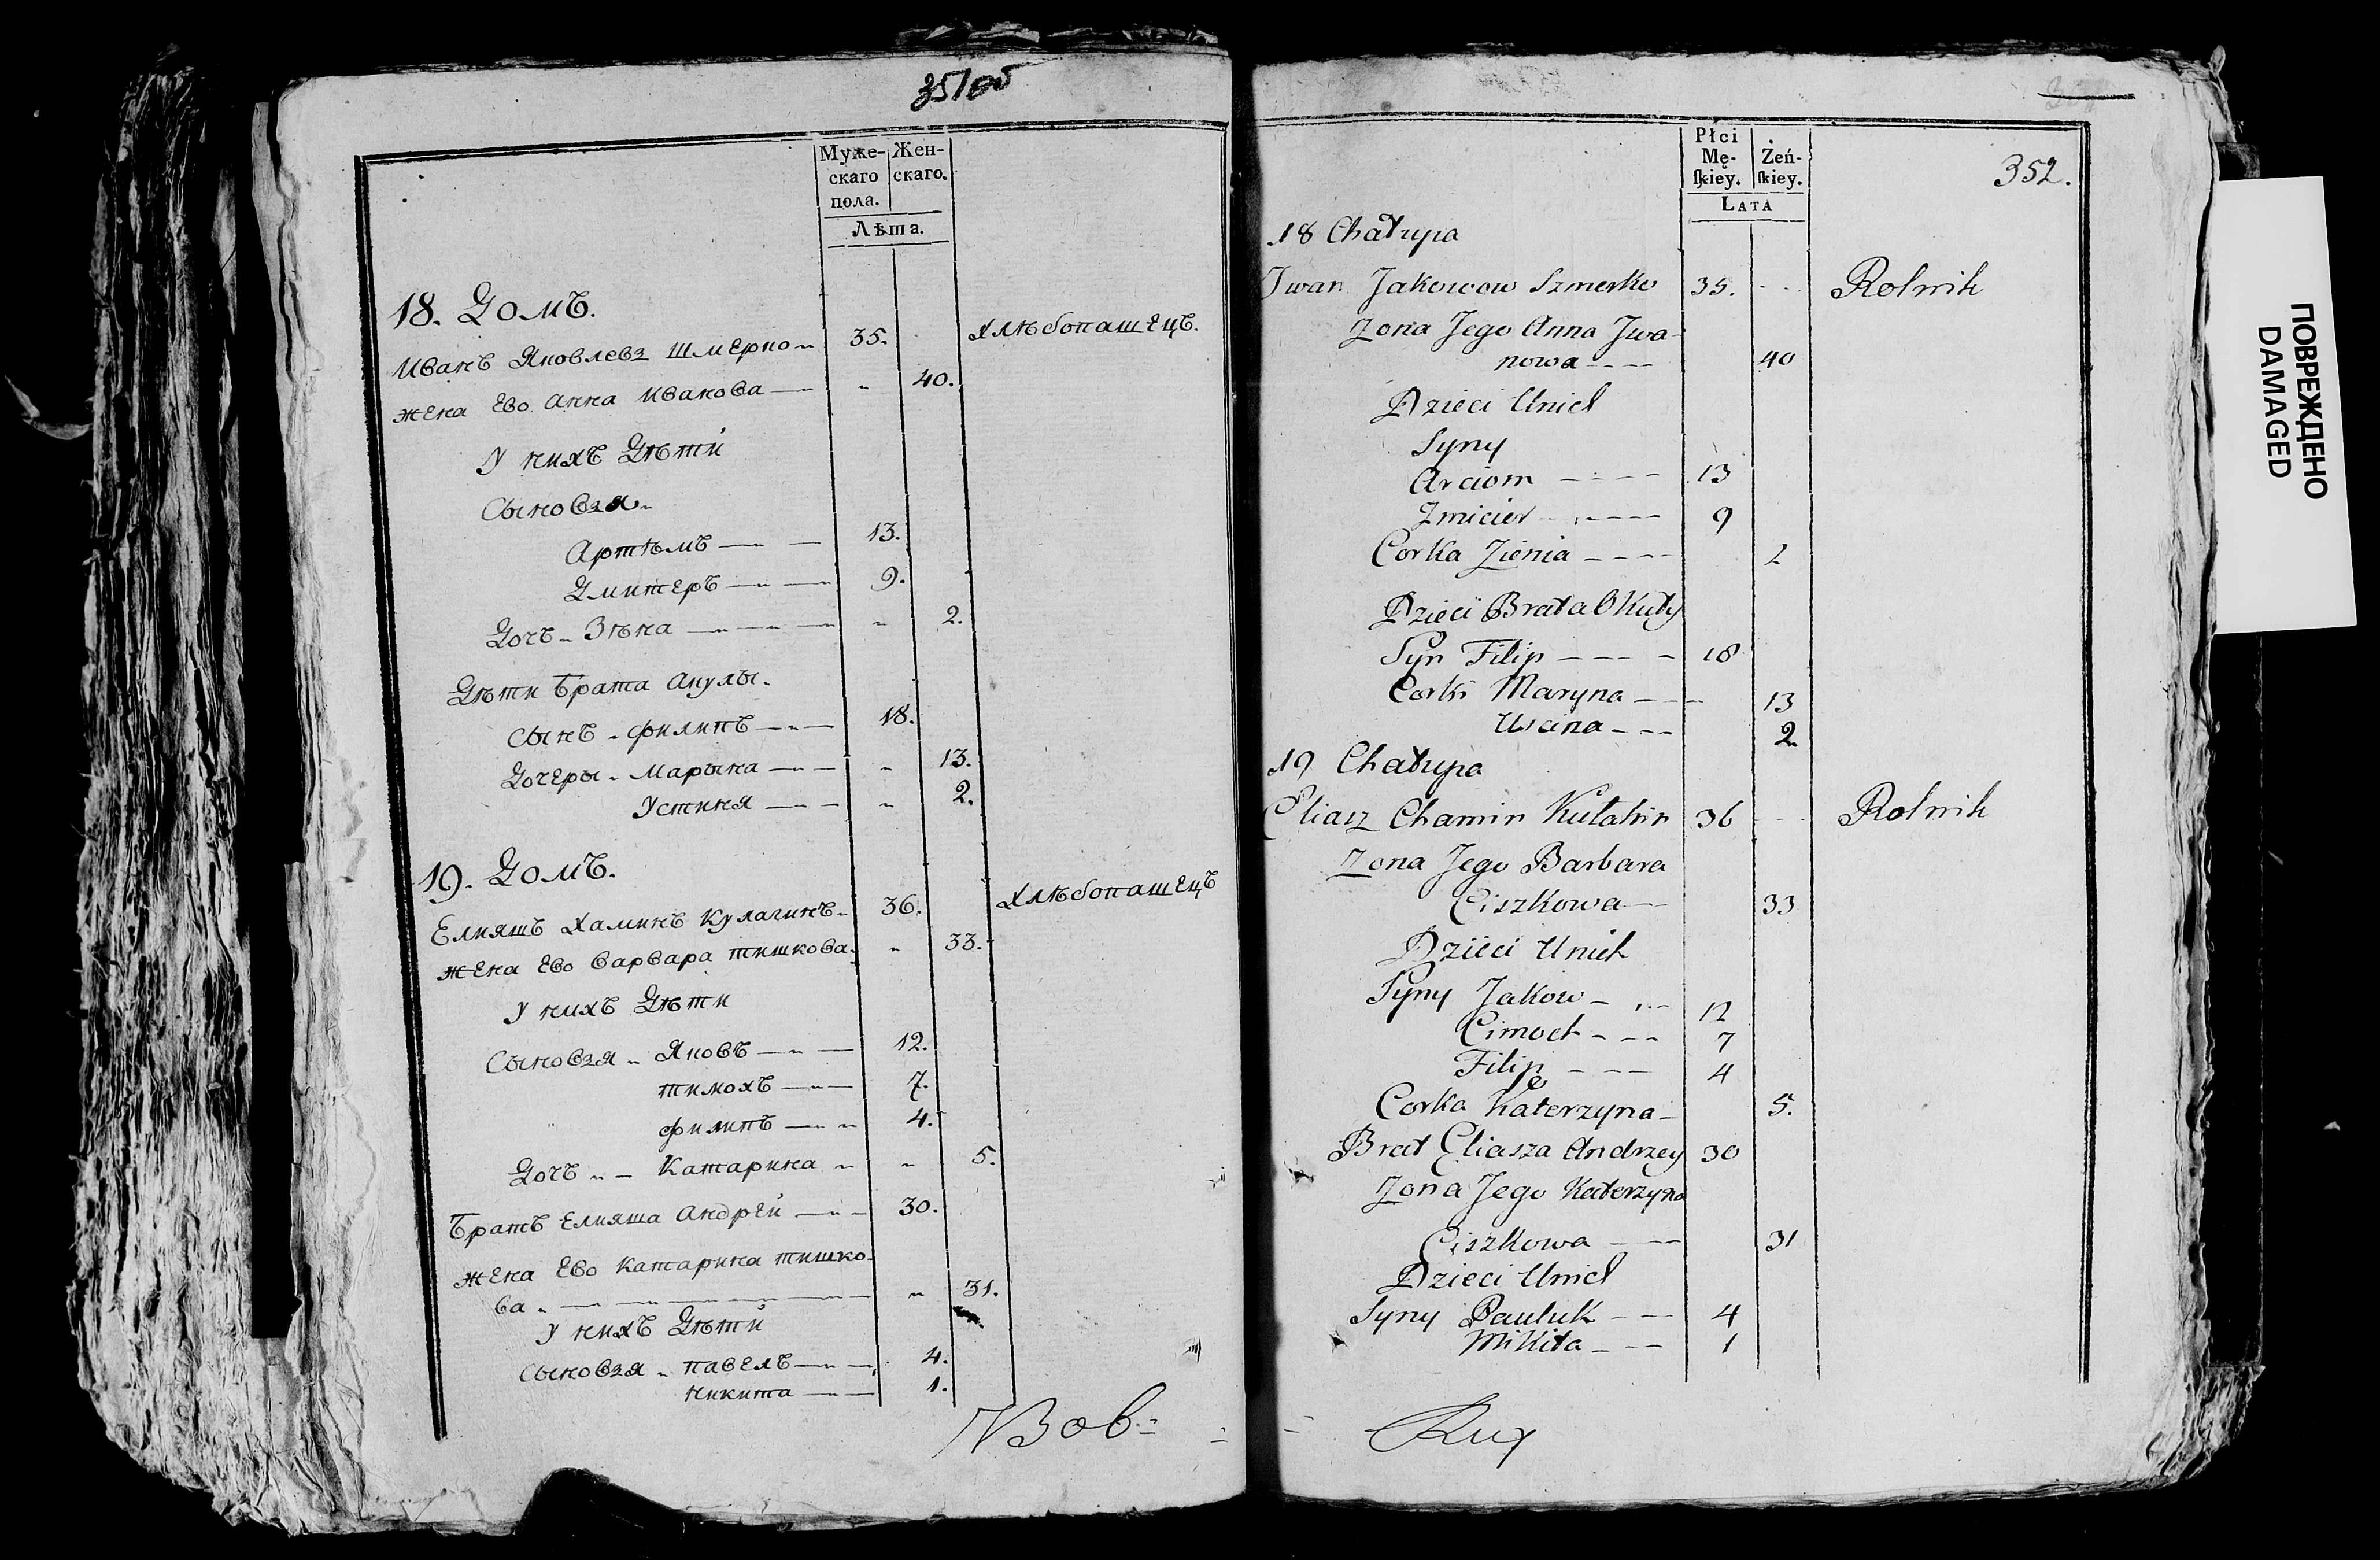 351об
Муже-
скаго
пола.
Жен-
скаго.
Лѣта.
18. Домъ.
Иванъ Яковлевъ Шмерко 35. Хлѣбопашецъ.
жена Ево Анна Иванова 40.
У нихъ Дѣти
Сыновья
Артѣмъ 13.
Дмитеръ 9.
Дочъ Зѣна 2.
Дѣти Брата Акулы.
Сынъ филипъ 18.
Дочеры Марына 13.
Устиня 2.
19. Домъ.
Елияшъ Хаминъ Кулагинъ 36. Хлѣбопашецъ
жена Ево Варвара тишкова. 33.
У нихъ Дѣти
Сыновья Яковъ 12.
тимохъ 7.
филипъ 4.
Дочъ Катарина 5.
Братъ Елияша Андрей 30.
жена Ево Катарина тишко-
ва 31.
У нихъ Дѣти
Сыновья павелъ 4.
никита 1.
352.
Płci
Mę-
ſkiey.
Żeń-
ſkiey.
LATA
18 Chałupa
Jwan Jakowow Szmerko 35. Rolnik
Zona Jego Anna Jwa-
nowa 40
Dzieci Unich
Syny
Arciom 13
Zmicier 9
Corka Zienia 2
Dzieci Brata Okuły
Syn Filip 18
Corki Maryna 13
Uscina 2.
19 Chałupa
Eliasz Chamin Kułahin 36 Rolnik
Zona Jego Barbara
Ciszkowa 33
Dzieci Unich
Syny Jakow 12
Cimoch 7
Filip 4
Corka Katerzyna 5.
Brat Eliasza Andrzey 30
Zona Jego Katerzyna
Ciszkowa 31
Dzieci Unich
Syny Pauluk 4
Mikita 1
ПОВРЕЖДЕНО
DAMAGED